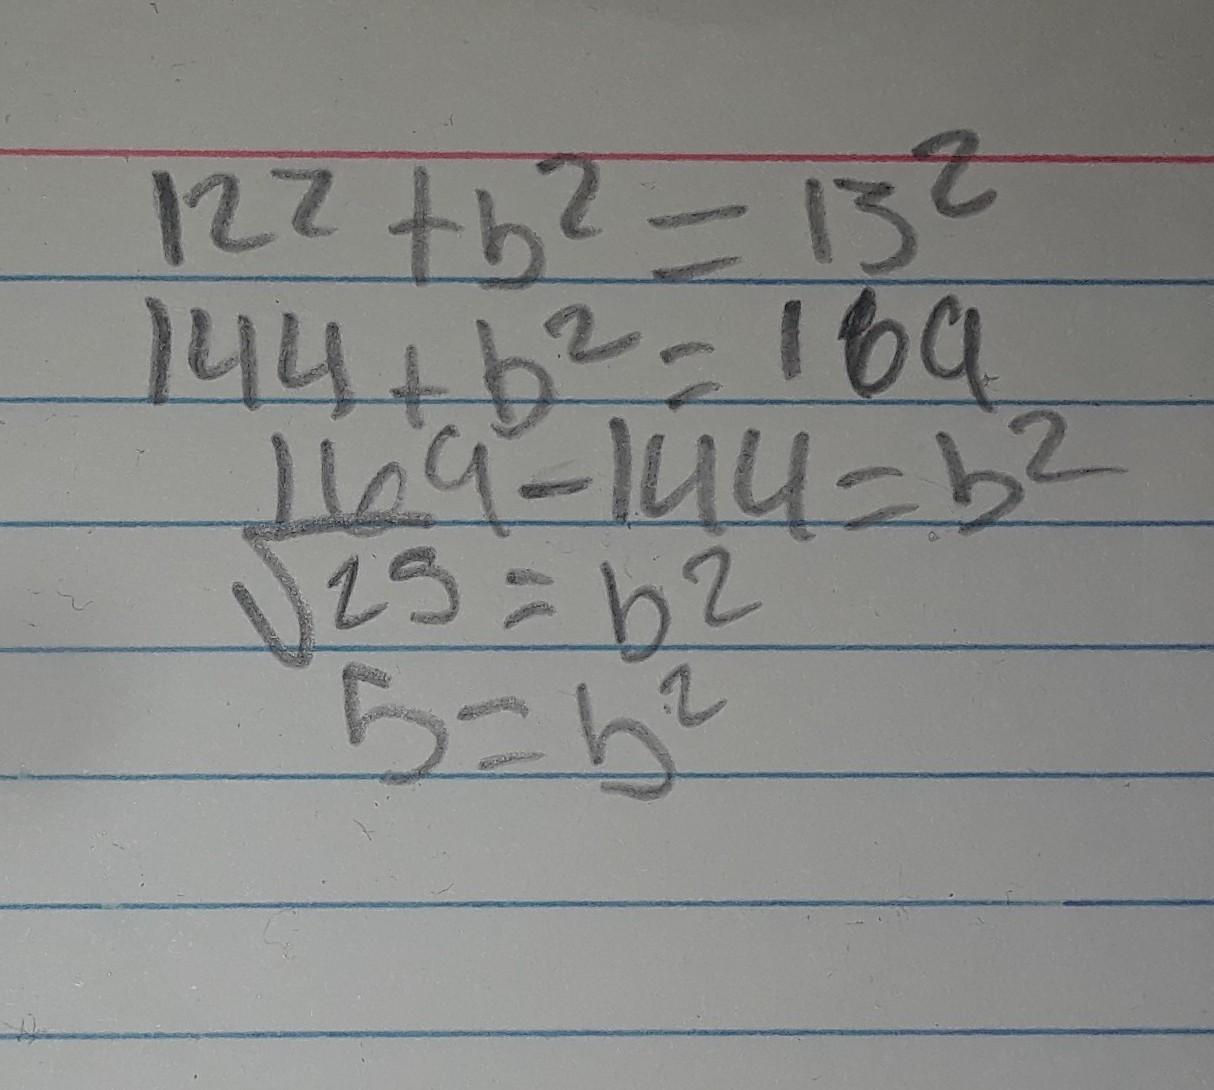 12² + b² = 13²
144 + b² = 169
169 - 144 = b²
√25 = b²
5 = b²